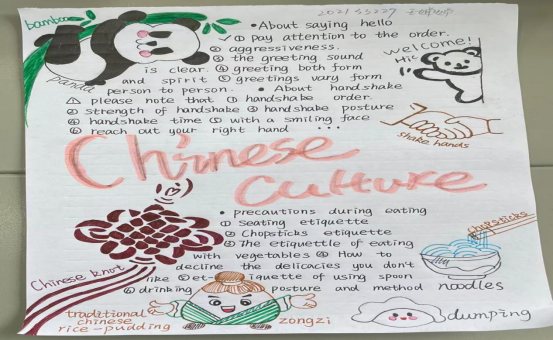 2021 55229
bamboo
• About saying hello
① pay attention to the order.
② aggressiveness.
③ the greeting sound
is clear. ④ greeting both form
and spirit ⑤ greetings vary form
person to person. • About handshake
please note that ① handshake order.
② strength of handshake ③ handshake posture
④ handshake time ⑤ with a smiling face
⑥ reach out your right hand ...
panda
welcome!
Hi~
shake hands
Chinese
Culture
• precautions during eating
① Seating etiquette
② Chopsticks etiquette
③ The etiquettle of eating
with vegetables ④ How to
decline the delicacies you don't
like ⑤ et-iquette of using spoon
⑥ drinking posture and method
Chinese knot
chopsticks
noodles
traditional
chinese
rice-pudding
zongzi
dumping